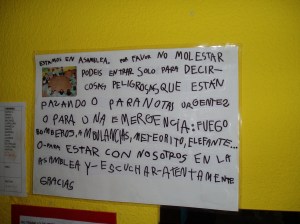 ESTAMOS EN ASAMBLEA, POR FAVOR NO MOLESTAR
PODEIS ENTRAR SOLO PARA DECIR-
COSAS PELIGROSAS, QUE ESTÁN
PASANDO O PARA NOTAS URGENTES
O PARA UNA EMERGENCIA: FUEGO
BOMBEROS, AMBULANCIAS, METEORITO, ELEFANTE...
O-PARA ESTAR CON NOSOTROS EN LA
ASAMBLEA Y-ESCUCHAR-ATENTAMENTE
GRACIAS